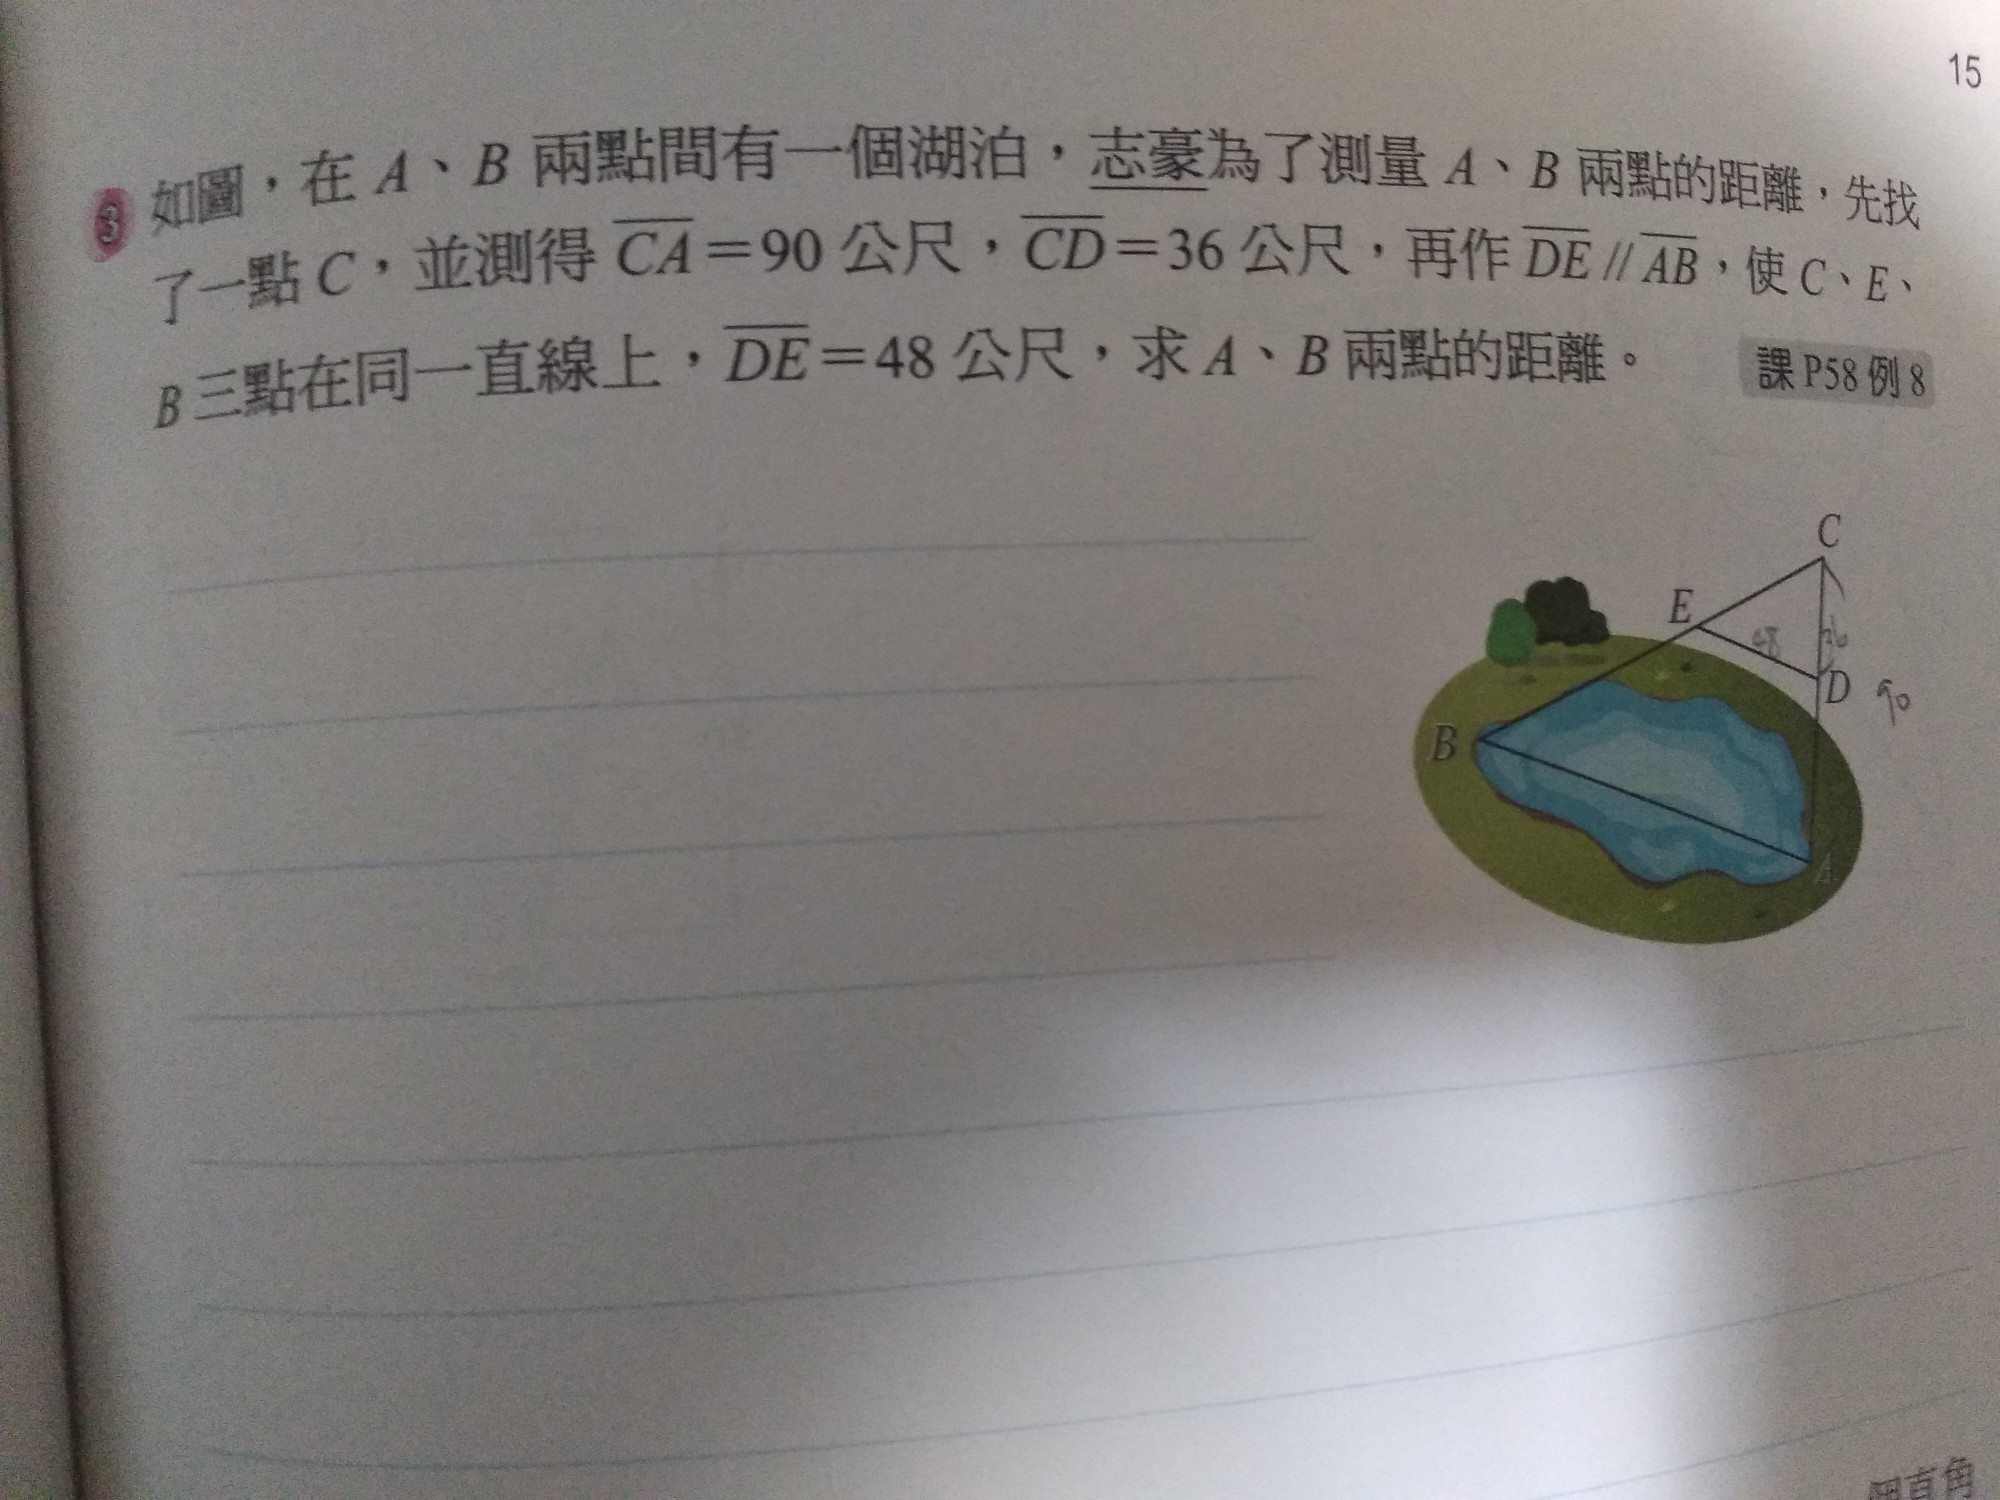 15
3 如圖，在 A、B 兩點間有一個湖泊，志豪為了測量 A、B 兩點的距離，先找
了一點 C，並測得 CA＝90 公尺，CD＝36 公尺，再作 DE // AB，使 C、E、
B 三點在同一直線上，DE＝48 公尺，求 A、B 兩點的距離。 課 P58 例 8
C
E
48
36
D
90
B
A
個直角